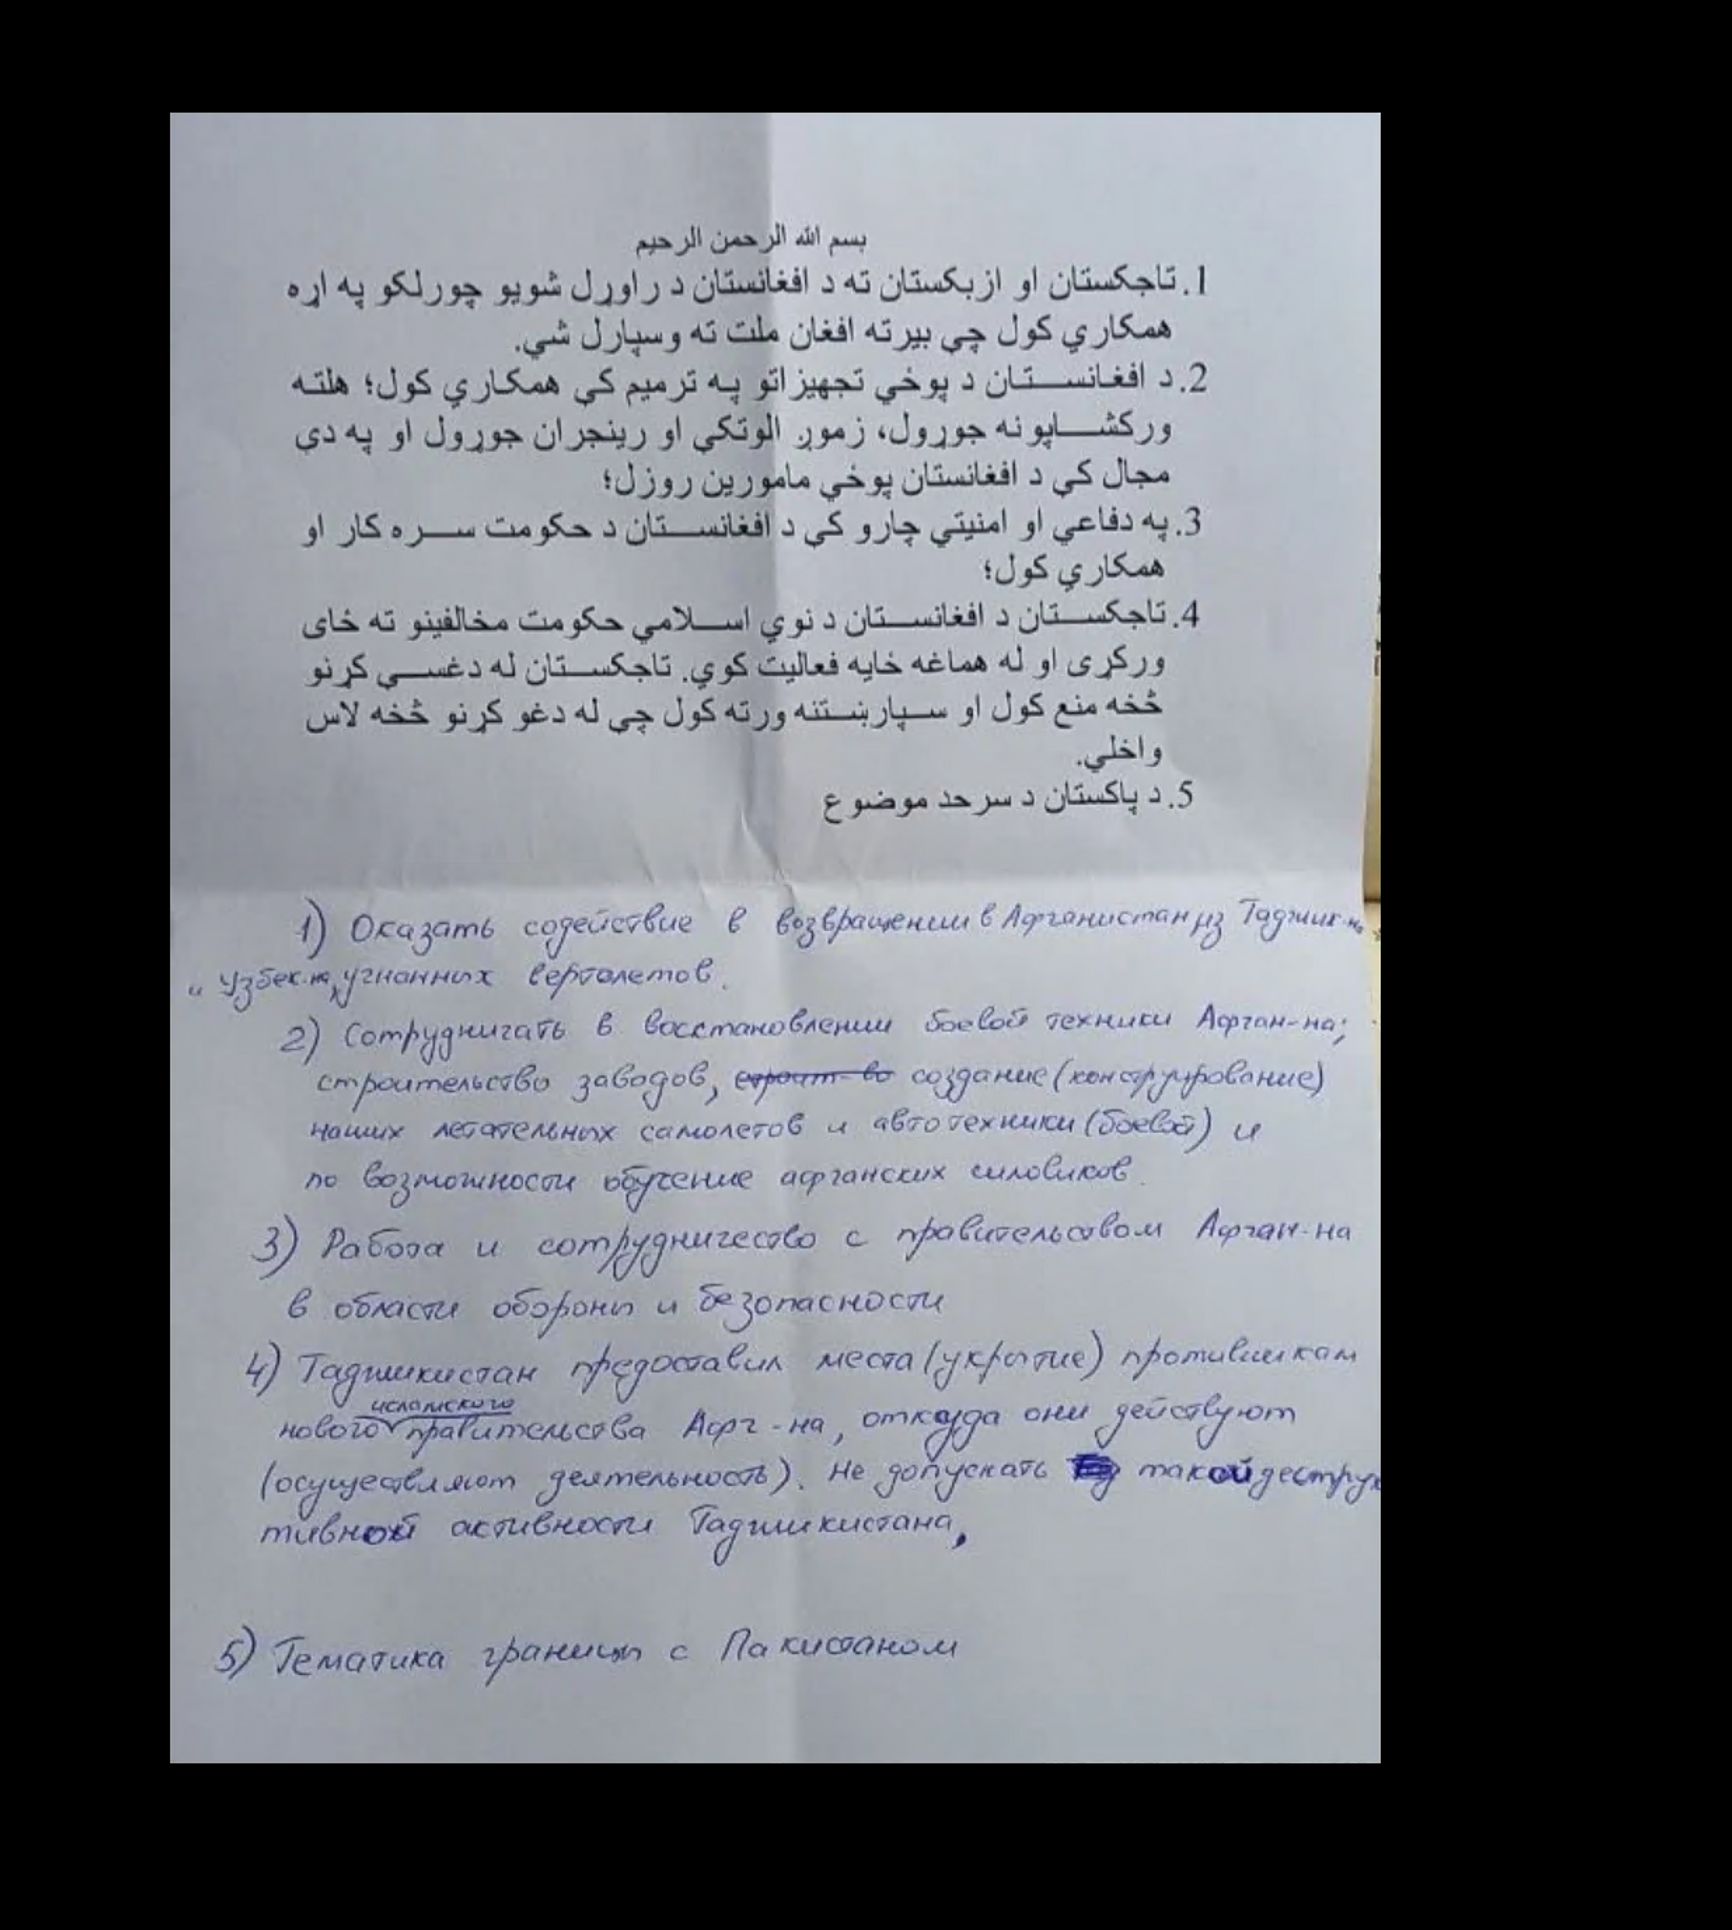 بسم الله الرحمن الرحيم
1. تاجکستان او ازبکستان ته د افغانستان د راوړل شويو چورلکو په اړه
همکاري کول چې بيرته افغان ملت ته وسپارل شي.
2. د افغانستان د پوځي تجهيزاتو په ترميم کې همکاري کول؛ هلته
ورکشاپونه جوړول، زموږ الوتکې او رينجران جوړول او په دې
مجال کې د افغانستان پوځي مامورين روزل؛
3. په دفاعي او امنيتي چارو کې د افغانستان د حکومت سره کار او
همکاري کول؛
4. تاجکستان د افغانستان د نوي اسلامي حکومت مخالفينو ته ځای
ورکړی او له هماغه ځايه فعاليت کوي. تاجکستان له دغسې کړنو
څخه منع کول او سپارښتنه ورته کول چې له دغو کړنو څخه لاس
واخلي.
5. د پاکستان د سرحد موضوع
1) Оказать содействие в возвращении в Афганистан из Таджик-на
и Узбек-на, угнанных вертолетов.
2) Сотрудничать в восстановлении боевой техники Афган-на;
строительство заводов, строит-во создание (конструирование)
наших летательных самолетов и автотехники (боевой) и
по возможности обучение афганских силовиков.
3) Работа и сотрудничество с правительством Афган-на
в области обороны и безопасности
4) Таджикистан предоставил места (укрытие) противникам
исламского
нового правительства Афг-на, откуда они действуют
(осуществляют деятельность). Не допускать такой деструк
тивной активности Таджикистана.
5) Тематика границы с Пакистаном